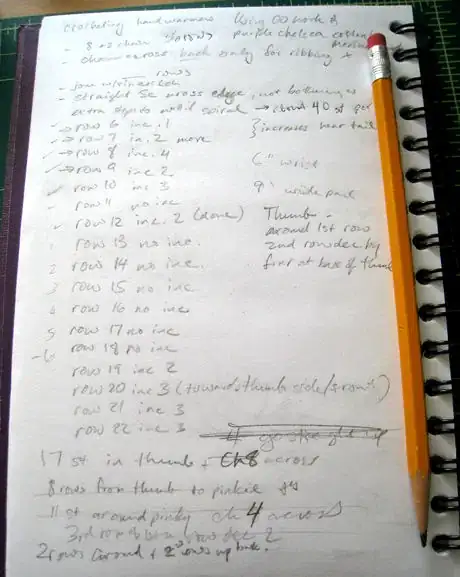 crocheting handwarmers Using OO hook &
- 8 sc chain purple chelsea
- chain across back only for ribbing x
rows
- straight Sc across edge, not bothering w
extra stitches until spiral → about 40 st per
✓→ row 6 inc. 1 } increases near tail
✓→ row 7 in. 2 more
✓→ row 8 inc. 4
✓→ row 9 inc 2 6" wrist
✓ row 10 inc 3 9" wide palm
- row 11 no inc
✓ row 12 inc. 2 (done) Thumb -
1 row 13 no inc. around 1st row
2 row 14 no inc. 2nd row dec by
3 row 15 no inc first at base of thumb
4 row 16 no inc
5 row 17 no inc
-6 row 18 no inc
row 19 inc 2
row 20 inc 3 (towards thumb side
row 21 inc 3
row 22 inc 3
17 st in thumb + Ch 8 across
8 rows from thumb to pinkie
11 st around pinky ch 4 across
3rd row dec 2
2 rows around + 2 rows up back.